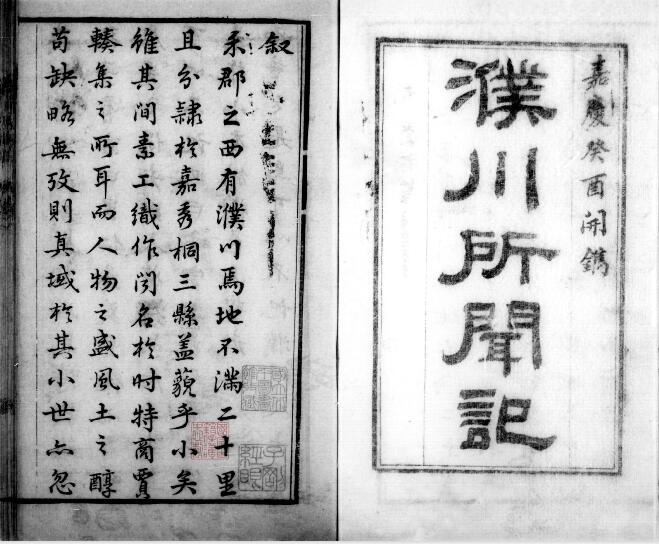 嘉慶癸酉開鐫
濮川所聞記
叙
禾郡之西有濮川焉地不滿二十里
且分隷於嘉秀桐三縣盖藐乎小矣
雖其間素工織作閃名於时特商賈
輳集之所耳而人物之盛風土之醇
苟缺略無攷則真域於其小世亦忽